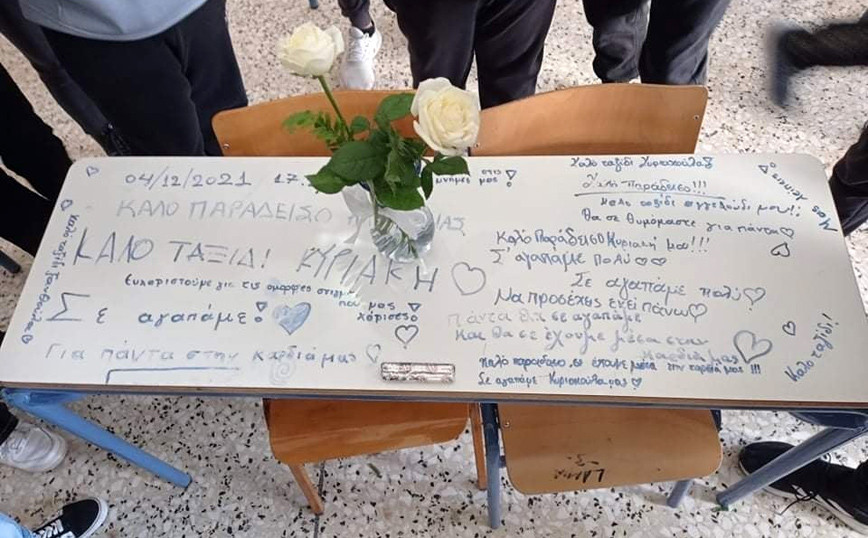 04/12/2021 17..
στις
μνήμες μας
ΚΑΛΟ ΠΑΡΑΔΕΙΣΟ
ΚΑΛΟ ΤΑΞΙΔΙ ΚΥΡΙΑΚΗ
Ευχαριστούμε για τις όμορφες στιγμές
που μας
χάρισες
Σε αγαπάμε!
Για πάντα στην καρδιά μας
Καλό ταξίδι Ξανθούλα
Καλό ταξίδι Κυριακούλα
Καλό ταξίδι αγγελούδι μου!!
Θα σε θυμόμαστε για πάντα
Μας λείπεις!
Καλό Παράδεισο Κυριακή μου!!!
Σ' αγαπάμε πολύ
Σε αγαπάμε πολύ
Να προσέχεις εκεί πάνω
Πάντα θα σε αγαπάμε
και θα σε έχουμε μέσα στην
καρδιά μας
Καλό παράδεισο, σε έχουμε μέσα στην καρδιά μας !!!
Σε αγαπάμε Κυριακούλα μας
Καλό ταξίδι!